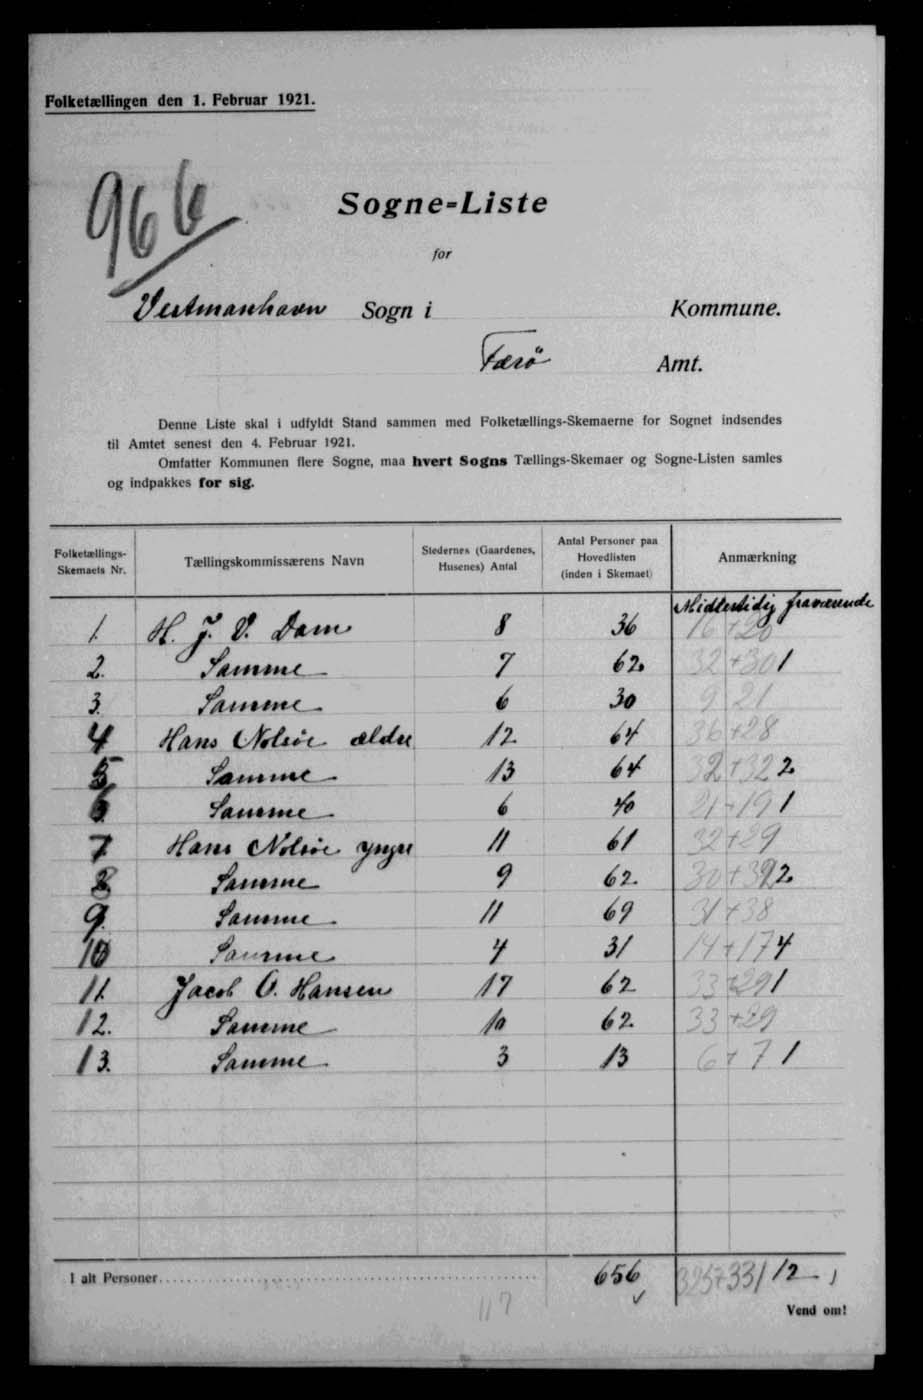 Folketællingen den 1. Februar 1921.
966
Sogne=Liste
for
Vestmanhavn Sogn i Kommune.
Færö Amt.
Denne Liste skal i udfyldt Stand sammen med Folketællings-Skemaerne for Sognet indsendes
til Amtet senest den 4. Februar 1921.
Omfatter Kommunen flere Sogne, maa hvert Sogns Tællings-Skemaer og Sogne-Listen samles
og indpakkes for sig.
Folketællings-Skemaets Nr. Tællingskommissærens Navn Stedernes (Gaardenes, Husenes) Antal Antal Personer paa Hovedlisten (inden i Skemaet) Anmærkning
Midlertidig fraværende
1. H. J. V. Dam 8 36 16+20
2. Samme 7 62 32+30 1
3. Samme 6 30 9 21
4 Hans Nolsöe ældre 12 64 36+28
5 Samme 13 64 32+32 2
6 Samme 6 40 21+19 1
7 Hans Nolsöe yngre 11 61 32+29
8 Samme 9 62 30+32 2
9. Samme 11 69 31+38
10 Samme 4 31 14+17 4
11. Jacob O. Hansen 17 62 33+29 1
12. Samme 10 62 33+29
13. Samme 3 13 6+7 1
I alt Personer 656 325+331 12
117
Vend om!